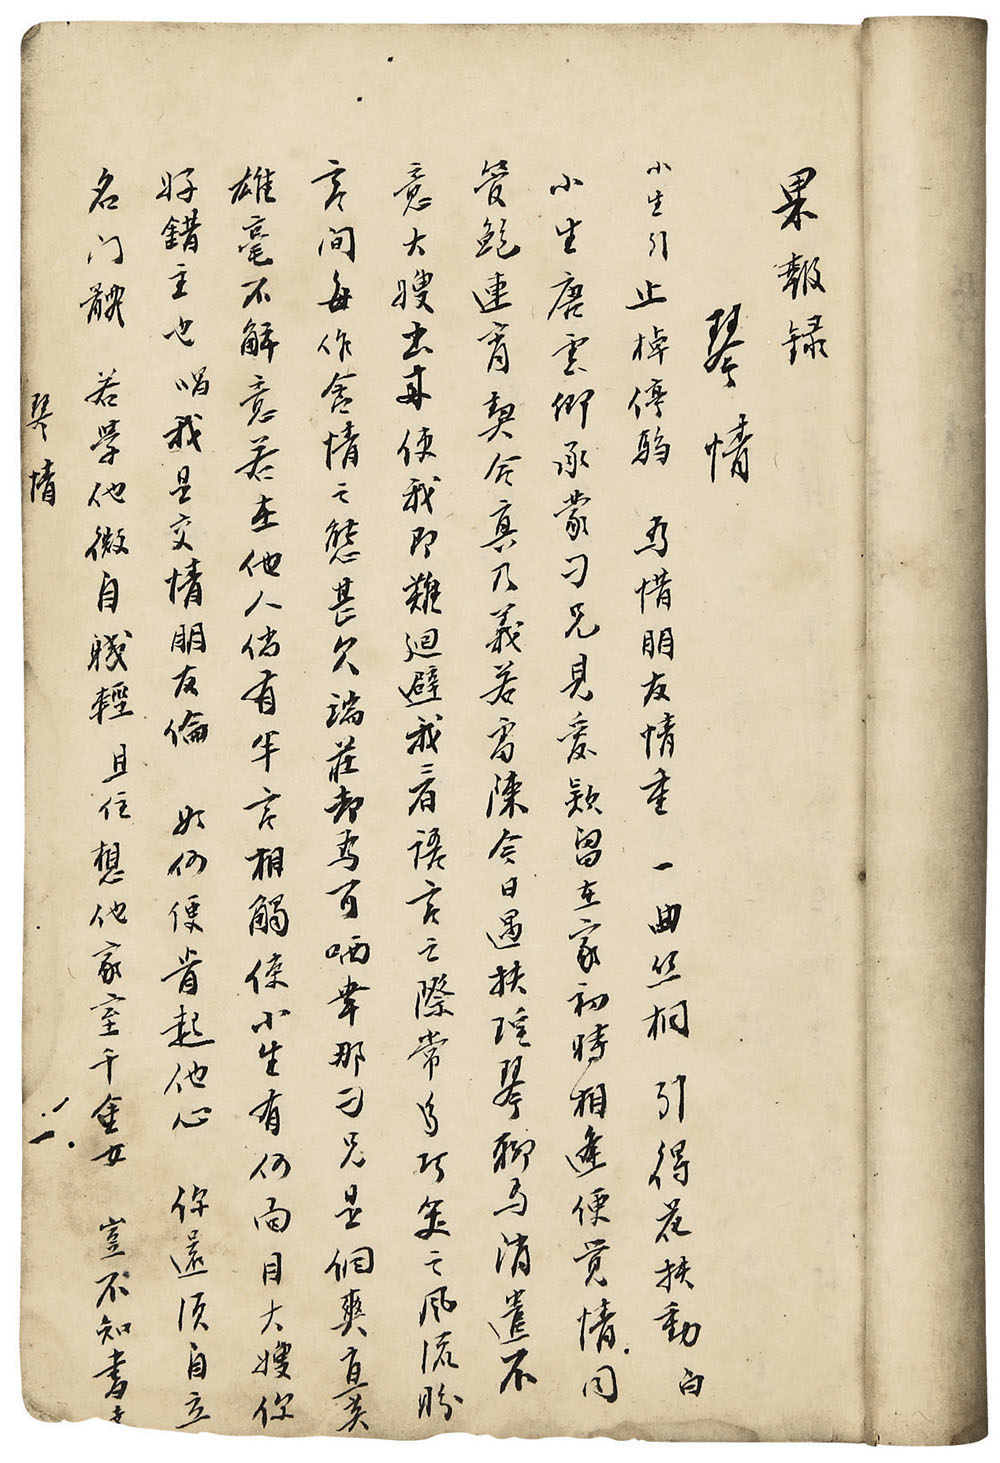 果報録
琴情
小生引 止棹停驂 為惜朋友情重 一曲丝桐 引得花扶動 白
小生唐雲卿承蒙刁兄見愛欵留在家初時相逢便覚情同
管鮑連宵契合真乃義若雷陳今日遇扶瑶琴聊為消遣不
意大嫂出来使我即難廻避我看語言之際常為巧笑之風流盼
言间每作含情之態甚欠端莊却為可哂幸那刁兄是個爽直英
雄毫不解意若在他人倘有半言相觸使小生有何面目大嫂你
好錯主也 唱我是交情朋友倫 如何便肯起他心 你還須自立
名门體 若學他微自賤輕 且住想他家室千金女 豈不知書
琴情